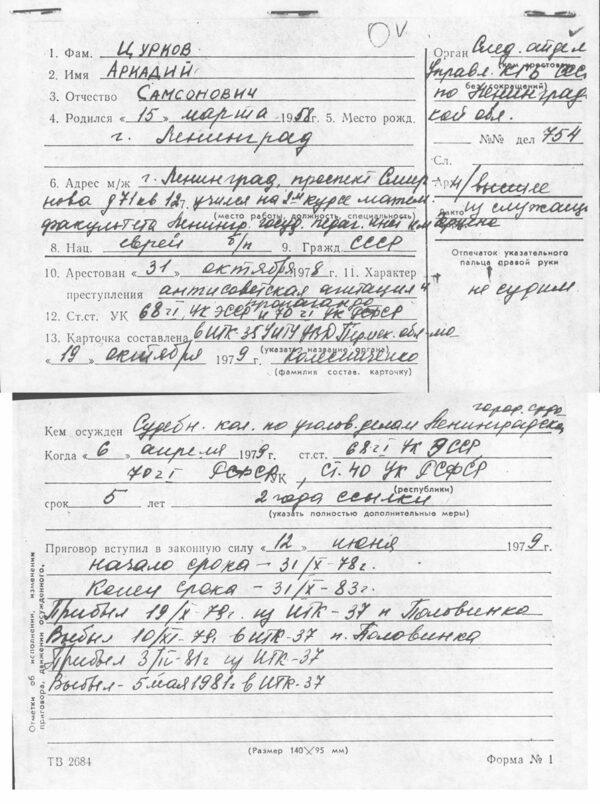 1. Фам. ЦУРКОВ
2. Имя АРКАДИЙ
3. Отчество САМСОНОВИЧ
4. Родился «15» марта 1958 г. 5. Место рожд.
г. Ленинград
6. Адрес м/ж г. Ленинград, проспект Смир-
нова д 71 кв 12. учился на 3м курсе матем.
факультета Ленингр. госуд. педаг. инст им Герцена
(место работы, должность, специальность)
8. Нац. еврей б/п 9. Гражд СССР
10. Арестован «31» октября 1978 г. 11. Характер
преступления антисоветская агитация и
пропаганда
12. Ст.ст. УК 68 ч I УК ЭССР и 70 ч I УК РСФСР
13. Карточка составлена в ИТК-35 УИТУ УВД Пермск. обл-ма
(указать название органа)
«19» октября 1979 г. Колесниченко
(фамилия состав. карточку)
Орган След. отдел
(кем арестован
Управл. КГБ СССР
без сокращений)
по Ленинград-
ской обл.
№№ дел 754
Сл.
Арх н/высшее
из служащих
Отпечаток указательного
пальца правой руки
не судим
Кем осужден Судебн. кол. по уголов. делам Ленинградска
город. суда
Когда «6» апреля 1979 г. ст.ст. 68 ч I УК ЭССР
70 ч I РСФСР УК, Ст. 40 УК РСФСР
(республики)
срок 5 лет 2 года ссылки
(указать полностью дополнительные меры)
Приговор вступил в законную силу «12» июня 1979 г.
начало срока – 31/X-78г.
Конец срока – 31/X-83г.
Прибыл 19/X-79г. из ИТК-37 п Половинка
Выбыл 10/XI-79 в ИТК-37 п. Половинка
Прибыл 3/IV-81г из ИТК-37
Выбыл - 5 мая 1981г в ИТК-37
Отметки об исполнении, изменении
приговора, движении осужденного.
(Размер 140×95 мм)
ТВ 2684 Форма № 1